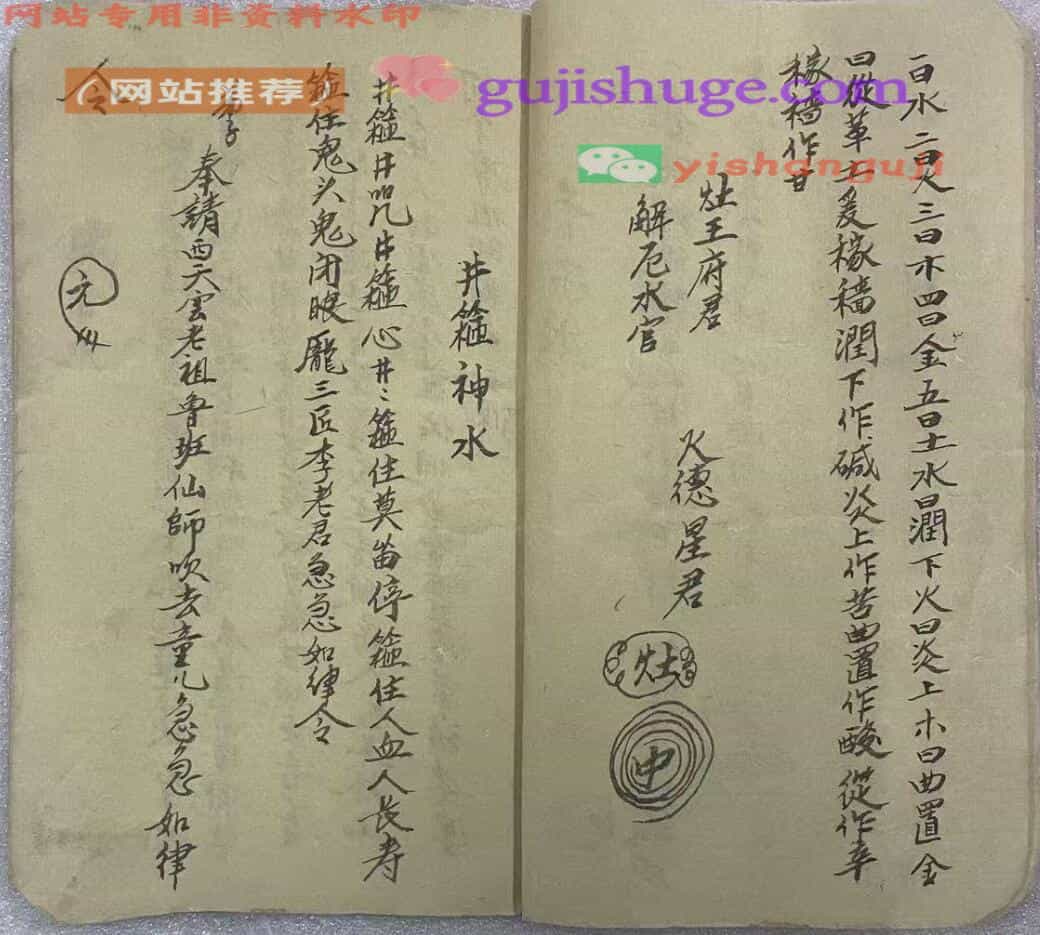 网站专用非资料水印
网站推荐
gujishuge.com
yishanguji
一曰水二曰火三曰木四曰金五曰土水曰潤下火曰炎上木曰曲置金
曰從革土爰稼穡潤下作碱炎上作苦曲置作酸從作辛
稼穡作甘
灶王府君
解厄水官
火德星君
灶
中
井箍神水
井箍井咒井箍心井〻箍住莫畄停箍住人血人長寿
箍住鬼头鬼闭眼龎三匠李老君急急如律令
李
奉請西天雲老祖鲁班仙師吹去童儿急急如律
令
元